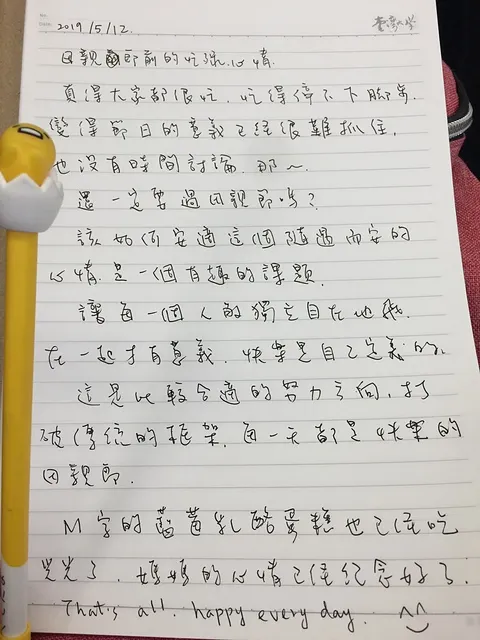 No.
Date 2019/5/12.
臺灣大學
母親節前的忙碌心情.
真得大家都很忙. 忙得停不下腳步.
變得節日的意義已經很難抓住,
也沒有時間討論. 那~
還一定要過母親節嗎?
該如何安適這個隨遇而安的
心情. 是一個有趣的課題.
讓每一個人的獨立自在地
在一起才有意義. 快樂是自己定義的.
這是比較合適的努力方向. 打
破傳統的框架. 每一天都是快樂的
母親節.
M字的藍莓乳酪蛋糕也已經吃
光光了. 媽媽的心情已經紀念好了.
That's all. happy every day. ^^